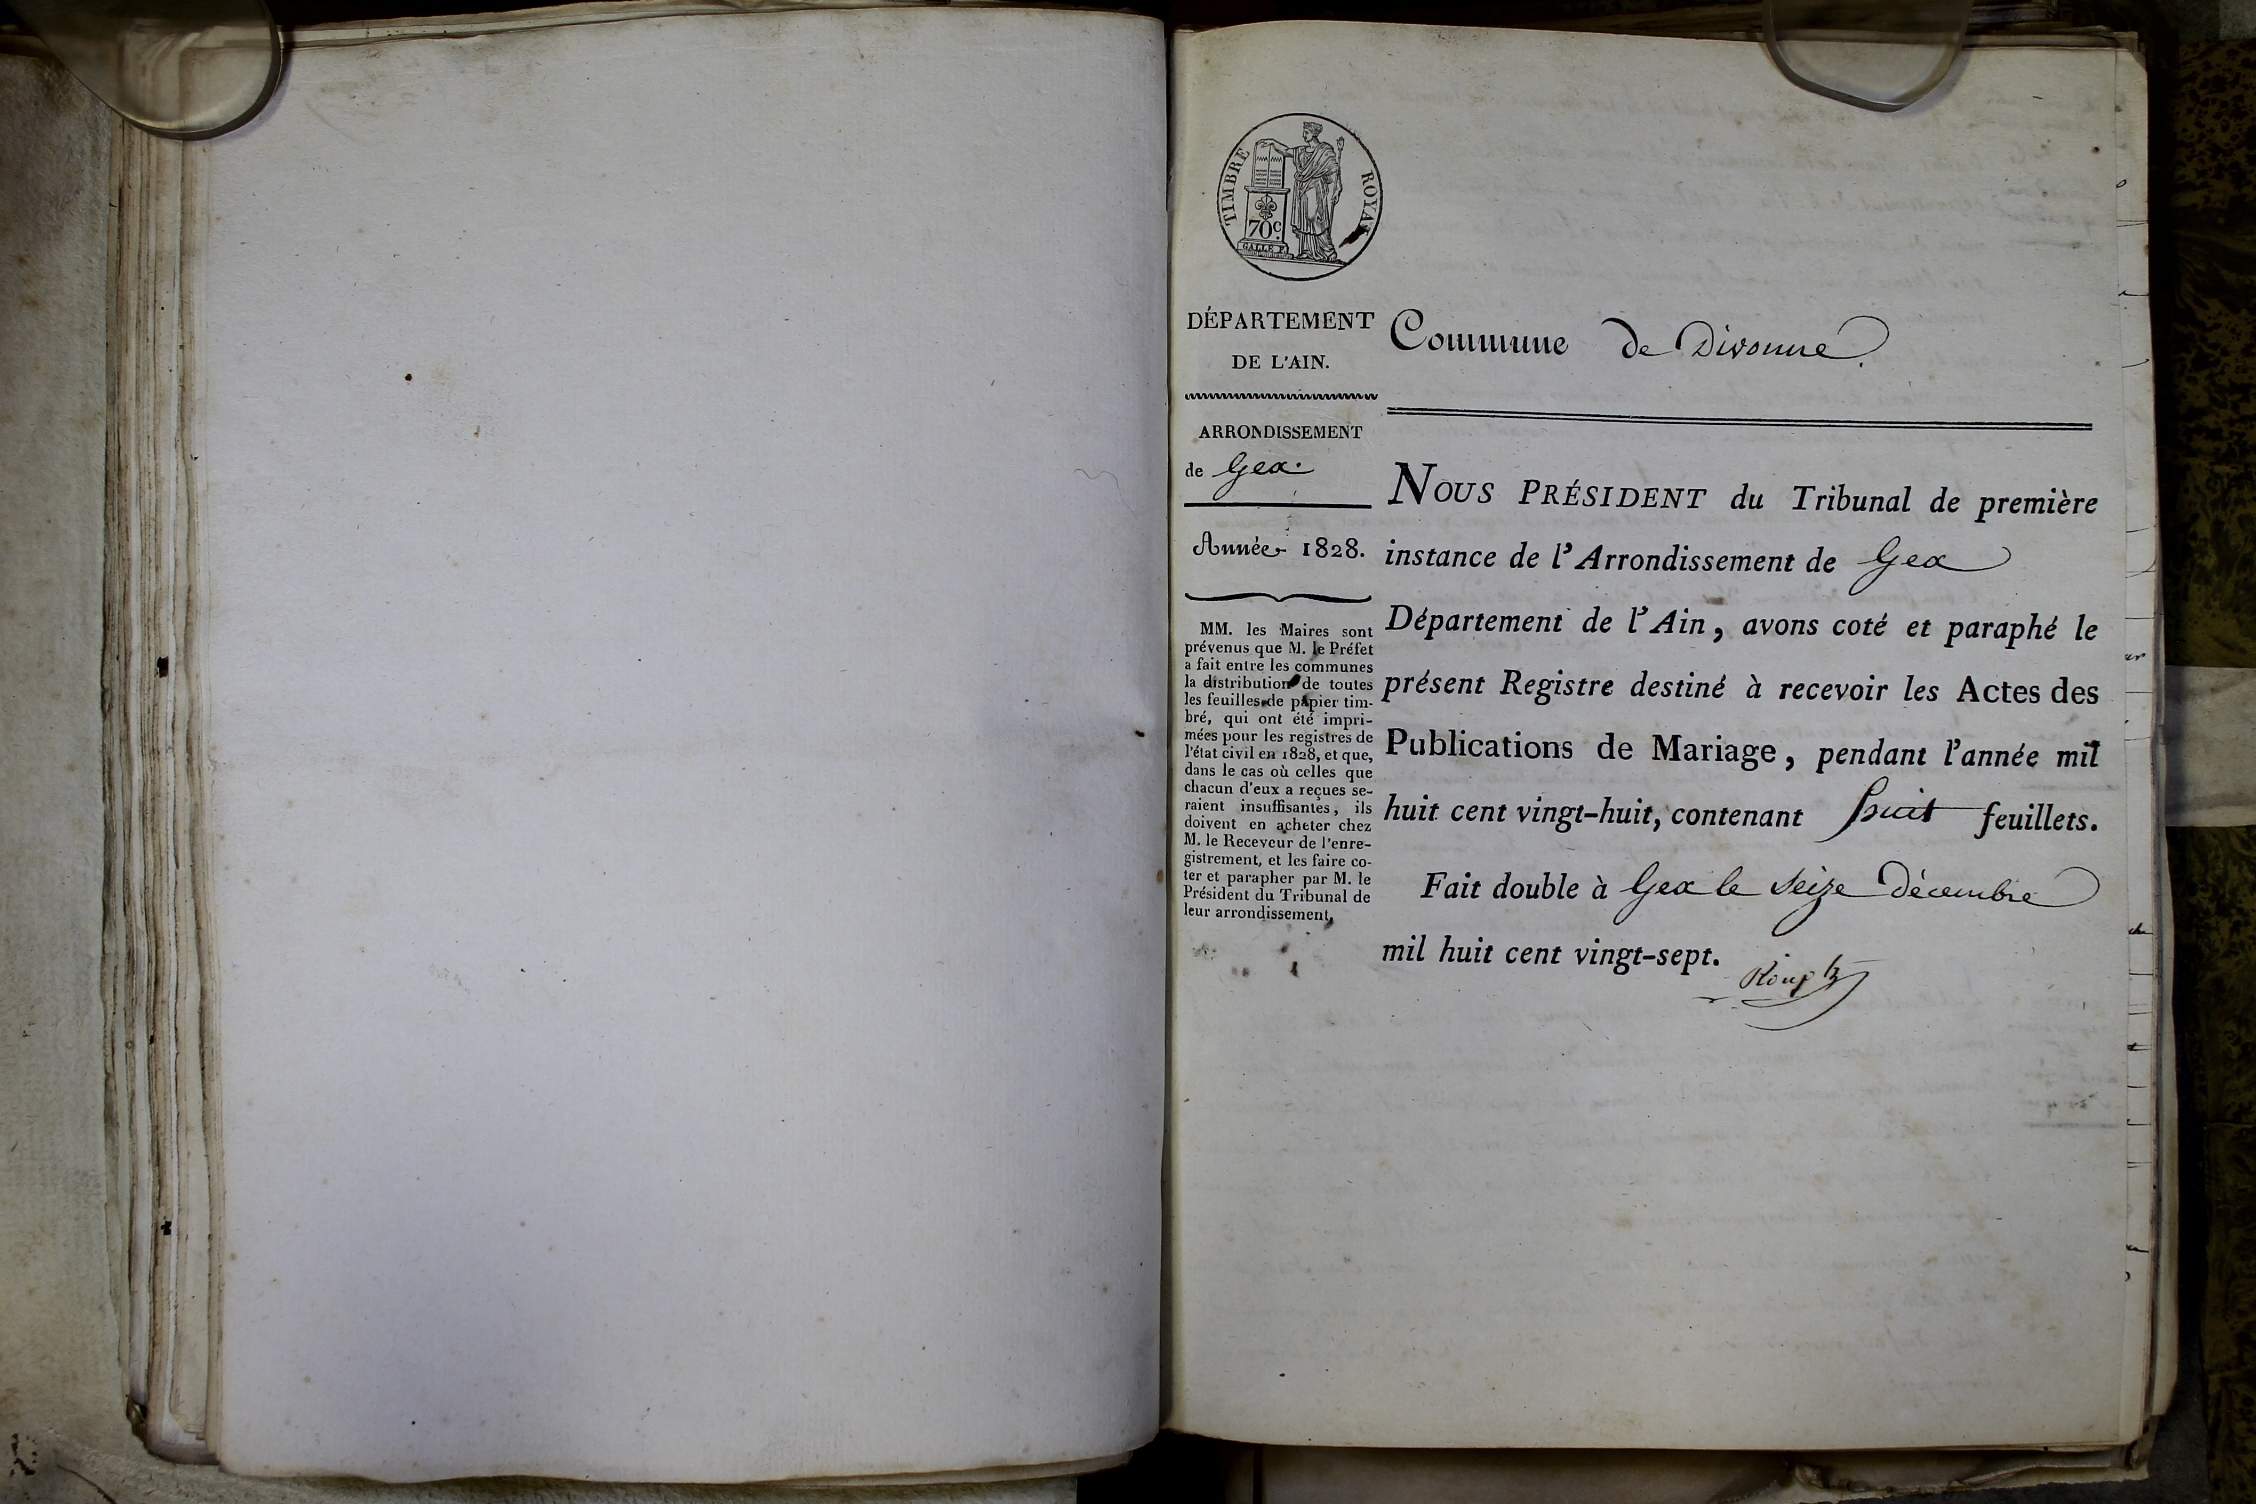 TIMBRE ROYAL
70c.
GALLE F.
DÉPARTEMENT
DE L'AIN.
ARRONDISSEMENT
de Gex.
Année 1828.
MM. les Maires sont
prévenus que M. le Préfet
a fait entre les communes
la distribution de toutes
les feuilles de papier tim-
bré, qui ont été impri-
mées pour les registres de
l'état civil en 1828, et que,
dans le cas où celles que
chacun d'eux a reçues se-
raient insuffisantes, ils
doivent en acheter chez
M. le Receveur de l'enre-
gistrement, et les faire co-
ter et parapher par M. le
Président du Tribunal de
leur arrondissement.
Commune de Divonne.
NOUS PRÉSIDENT du Tribunal de première
instance de l'Arrondissement de Gex
Département de l'Ain, avons coté et paraphé le
présent Registre destiné à recevoir les Actes des
Publications de Mariage, pendant l'année mil
huit cent vingt-huit, contenant huit feuillets.
Fait double à Gex le seize décembre
mil huit cent vingt-sept.